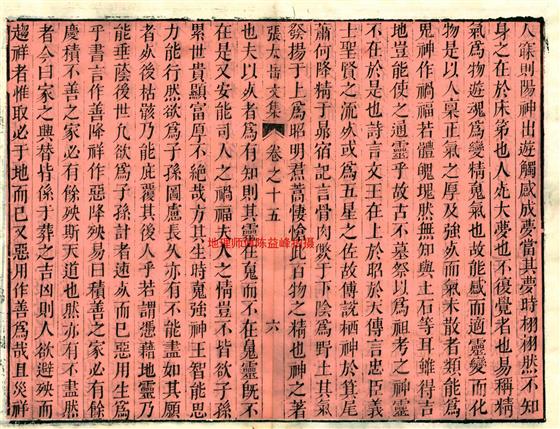 人寐則陽神出遊觸感成夢當其夢時栩栩然不知
身之在於床笫也人死大夢也不復覺者也易稱精
氣爲物遊魂爲變精䰟氣也故能感而適靈變而化
物是以人稟正氣之厚及強死而氣未散者類能爲
鬼神作禍福若體魄塊然無知與土石等耳雖得吉
地豈能使之通靈乎故古不墓祭以爲祖考之神靈
不在於是也詩言文王在上於昭於天傳言忠臣義
士聖賢之流死或爲五星之佐故傅說栖神於箕尾
蕭何降精于昴宿記言骨肉斃于下陰爲野土其氣
發揚于上爲昭明焄蒿悽愴此百物之精也神之著
張太岳文集 卷之十五 六
也夫以死者爲有知則其靈在䰟而不在鬼靈旣不
在是又安能司人之禍福大人之情豈不皆欲子孫
累世貴顯富厚不絶哉方其生時䰟強神王智能思
力能行然欲爲子孫圖慮長久亦有不能盡如其願
者死後枯骸乃能庇覆其後人乎若謂憑藉地靈乃
能垂蔭後世允欲爲子孫計者速死而已惡用生爲
乎書言作善降祥作惡降殃易曰積善之家必有餘
慶積不善之家必有餘殃斯天道也然亦有不盡然
者今曰家之興替皆係于葬之吉凶則人欲避殃而
趨祥者惟取必于地而已又惡用作善爲哉且災祥
地理师 陈益峰